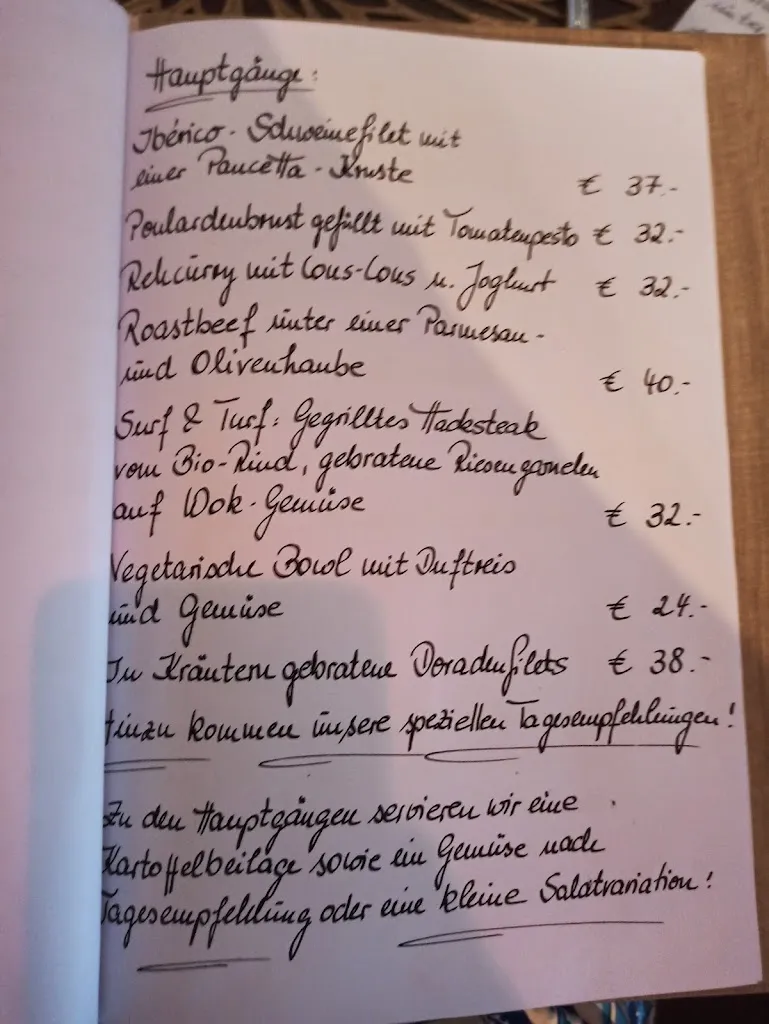 Hauptgänge:
Ibérico - Schweinefilet mit
einer Pancetta - Kruste € 37.-
Poulardenbrust gefüllt mit Tomatenpesto € 32.-
Rehcurry mit Cous-Cous u. Joghurt € 32.-
Roastbeef unter einer Parmesan -
und Olivenhaube € 40.-
Surf & Turf: Gegrilltes Hacksteak
vom Bio-Rind, gebratene Riesengarnelen
auf Wok-Gemüse € 32.-
Vegetarische Bowl mit Duftreis
und Gemüse € 24.-
In Kräutern gebratene Doradenfilets € 38.-
Hinzu kommen unsere speziellen Tagesempfehlungen!
Zu den Hauptgängen servieren wir eine
Kartoffelbeilage sowie ein Gemüse nach
Tagesempfehlung oder eine kleine Salatvariation!